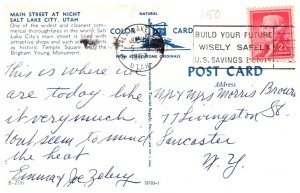 MAIN STREET AT NIGHT
SALT LAKE CITY, UTAH
One of the widest and cleanest commercial thoroughfares in the world. Salt
Lake City's main street is lined with
attractive shops and such
historic Temple Square
Brigham Young Monument.
NATURAL
COLOR CARD
FROM KODACHROME ORIGINALS
150
BUILD YOUR FUTURE
WISELY SAFELY
U.S. SAVINGS BONDS
POST CARD
Address
this is where it
are today like
it very much
dont seem to mind
the heat
Emmay Joe Zelery
Mr y Mrs Morris Brown
77 Livingston St.
Lancaster
N.Y.
B-206
12193-1